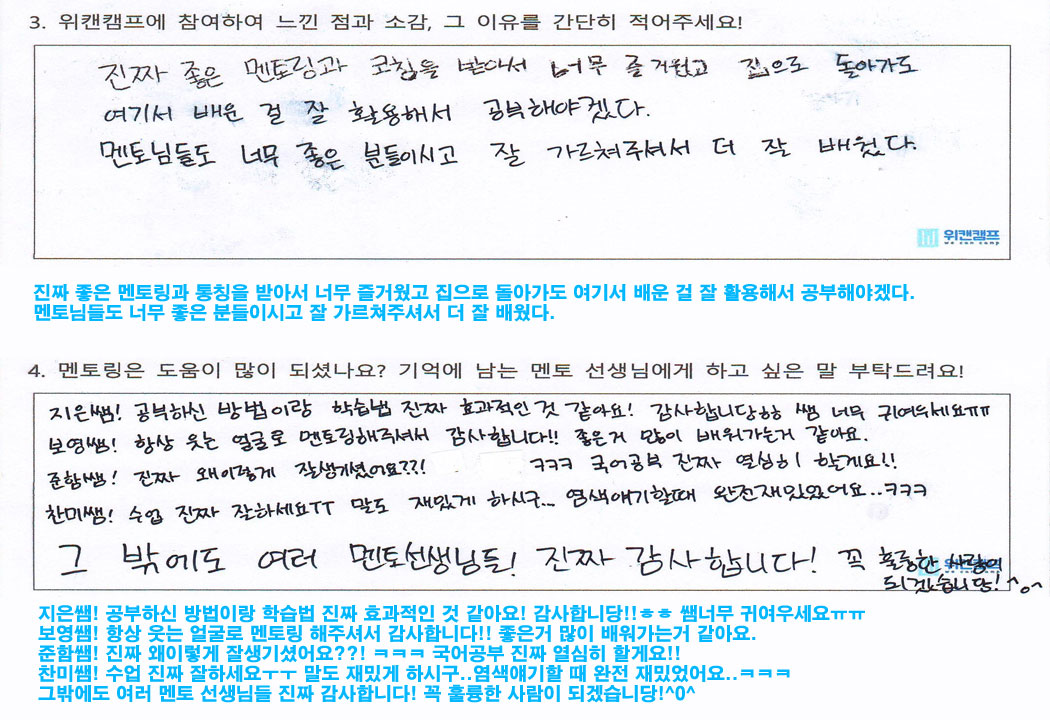 3. 위캔캠프에 참여하여 느낀 점과 소감, 그 이유를 간단히 적어주세요!
진짜 좋은 멘토링과 코칭을 받아서 너무 즐거웠고 집으로 돌아가도
여기서 배운 걸 잘 활용해서 공부해야겠다.
멘토님들도 너무 좋은 분들이시고 잘 가르쳐주셔서 더 잘 배웠다.
위캔캠프
we can camp
진짜 좋은 멘토링과 통칭을 받아서 너무 즐거웠고 집으로 돌아가도 여기서 배운 걸 잘 활용해서 공부해야겠다.
멘토님들도 너무 좋은 분들이시고 잘 가르쳐주셔서 더 잘 배웠다.
4. 멘토링은 도움이 많이 되셨나요? 기억에 남는 멘토 선생님에게 하고 싶은 말 부탁드려요!
지은쌤! 공부하신 방법이랑 학습법 진짜 효과적인 것 같아요! 감사합니당ㅎㅎ 쌤 너무 귀여우세요ㅠㅠ
보영쌤! 항상 웃는 얼굴로 멘토링해주셔서 감사합니다!! 좋은거 많이 배워가는거 같아요.
준함쌤! 진짜 왜이렇게 잘생기셨어요??! ㅋㅋㅋ 국어공부 진짜 열심히 할게요!!
찬미쌤! 수업 진짜 잘하세요ㅜㅜ 말도 재밌게 하시구... 염색얘기할때 완전재밌었어요..ㅋㅋㅋ
그 밖에도 여러 멘토선생님들! 진짜 감사합니다! 꼭 훌륭한 사람이
되겠습니당!^o^
지은쌤! 공부하신 방법이랑 학습법 진짜 효과적인 것 같아요! 감사합니당!!ㅎㅎ 쌤너무 귀여우세요ㅠㅠ
보영쌤! 항상 웃는 얼굴로 멘토링 해주셔서 감사합니다!! 좋은거 많이 배워가는거 같아요.
준함쌤! 진짜 왜이렇게 잘생기셨어요??! ㅋㅋㅋ 국어공부 진짜 열심히 할게요!!
찬미쌤! 수업 진짜 잘하세요ㅜㅜ 말도 재밌게 하시구..염색얘기할 때 완전 재밌었어요..ㅋㅋㅋ
그밖에도 여러 멘토 선생님들 진짜 감사합니다! 꼭 훌륭한 사람이 되겠습니당!^0^